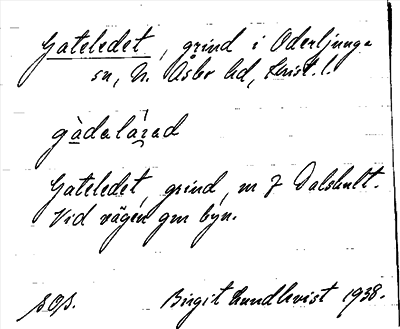 Gateledet, grind i Oderljunga
sn, N. Åsbo hd, Krist. l.
gàdaláʒad
Gateledet, grind, nr 7 Dalshult.
Vid vägen gm byn.
S.O.S. Birgit Lundkvist 1938.